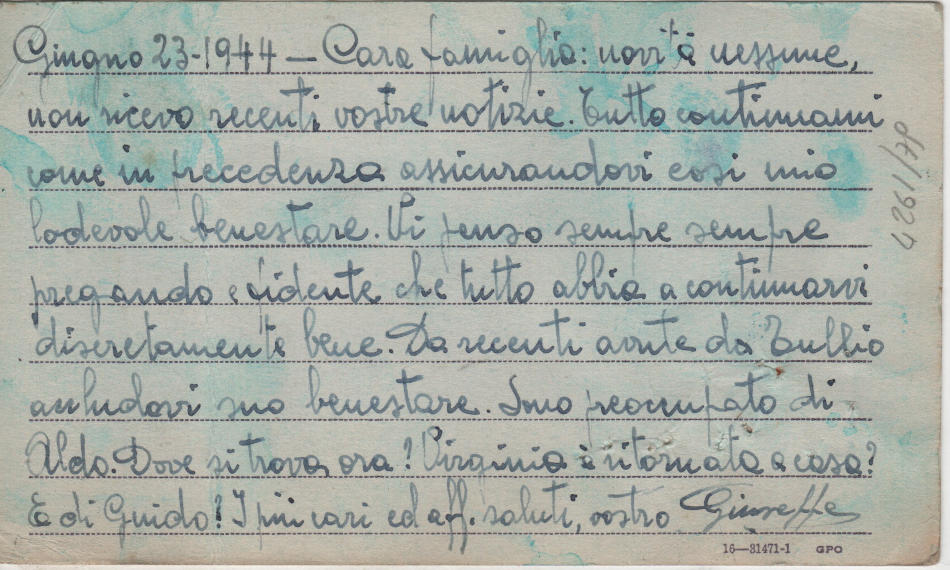 Giugno 23-1944 — Cara famiglia: novità nessune,
non ricevo recenti vostre notizie. Tutto continuami
come in precedenza assicurandovi così mio
lodevole benestare. Vi penso sempre sempre
pregando e fidente che tutto abbia a continuarvi
discretamente bene. Da recenti avute da Tullio
accludovi suo benestare. Sono preoccupato di
Aldo. Dove si trova ora? Virginia è ritornata a casa?
E di Guido? I più cari ed aff. saluti, vostro Giuseppe
16—31471-1 GPO
4261/78